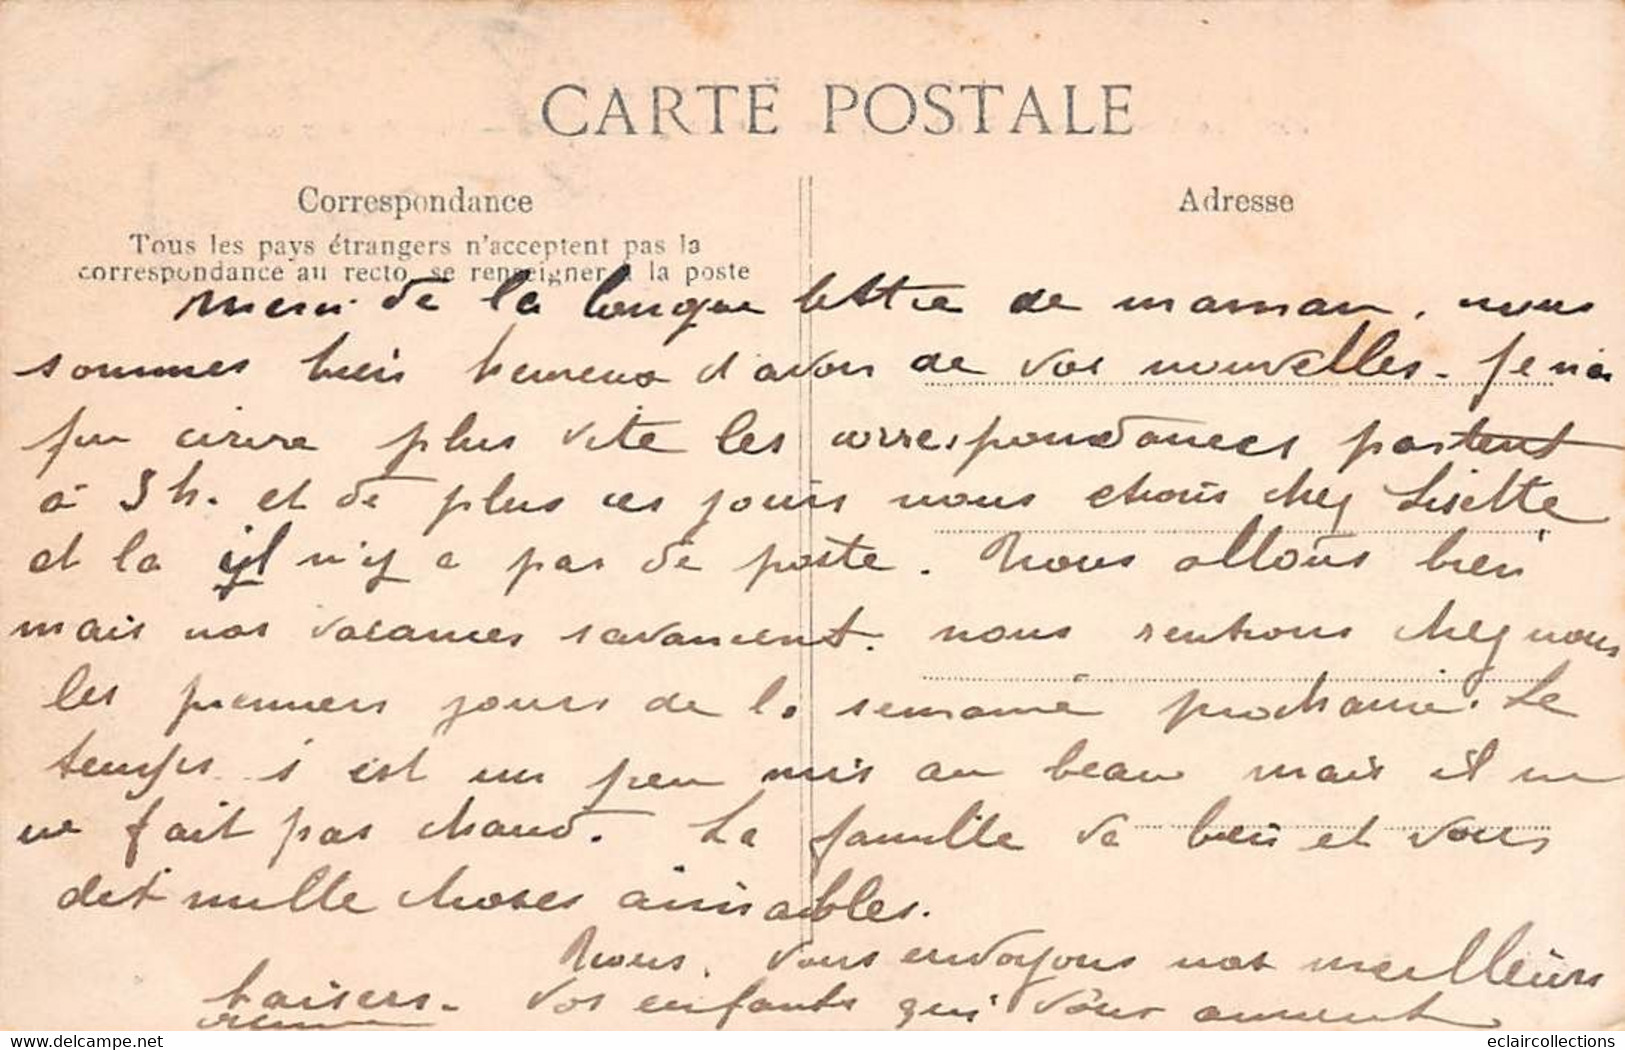 CARTE POSTALE
Correspondance
Adresse
Tous les pays étrangers n'acceptent pas la
correspondance au recto, se renseigner à la poste
Merci de la longue lettre de maman. nous
sommes bien heureux d'avoir de vos nouvelles. Je n'ai
pu écrire plus vite les correspondances partent
à 3 h. et de plus ces jours nous étions chez Lisette
et la il n'y a pas de poste. Nous allons bien
mais nos vacances s'avancent. nous rentrons chez nous
les premiers jours de la semaine prochaine. Le
temps s'est un peu mis au beau mais il
ne fait pas chaud. La famille va bien et vous
dit mille choses aimables.
Nous vous envoyons nos meilleurs
baisers. Vos enfants qui vous aiment
eclaircollections